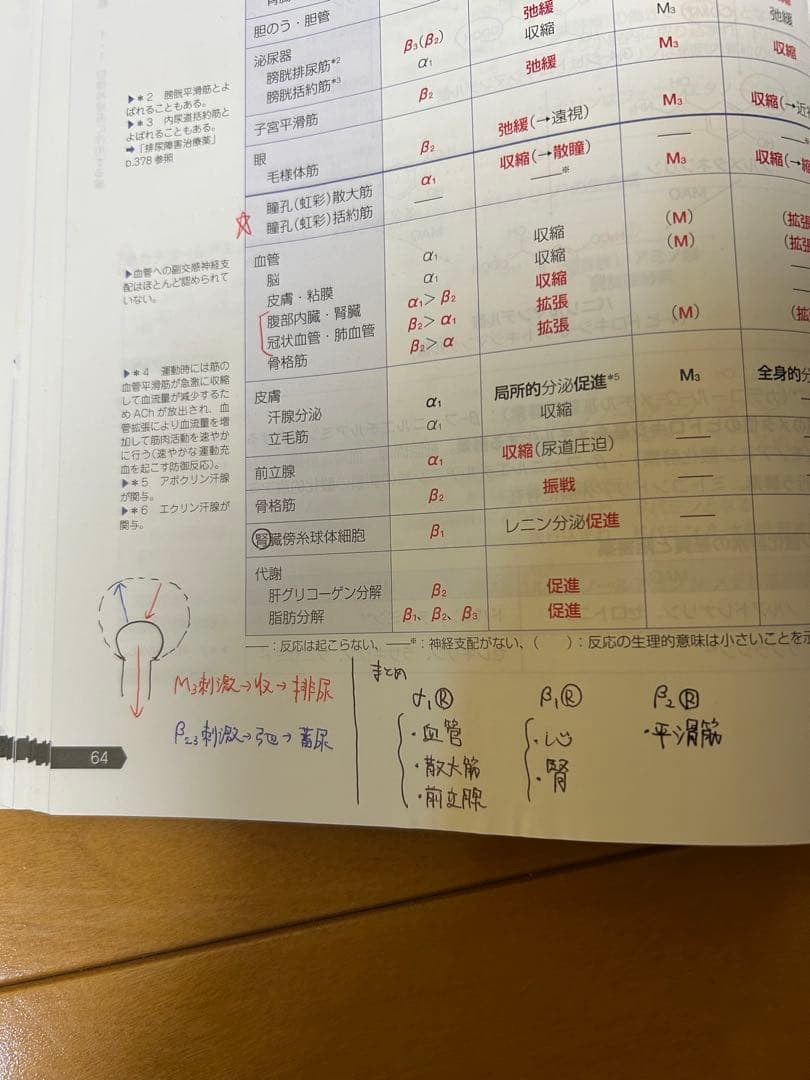 胆のう・胆管 弛緩 M₃
弛緩
泌尿器
膀胱排尿筋*2 β₃(β₂) 弛緩 M₃ 収縮
膀胱括約筋*3 α₁ 収縮 弛緩
子宮平滑筋 β₂ 弛緩 M₃ 収縮
眼
毛様体筋 β₂ 弛緩(→遠視) M₃ 収縮(→近視
瞳孔(虹彩)散大筋 α₁ 収縮(→散瞳) ――
瞳孔(虹彩)括約筋 ―― ――※ M₃ 収縮(→縮
血管
脳 α₁ 収縮 (M) (拡張
皮膚・粘膜 α₁ 収縮 (M) (拡張
腹部内臓・腎臓 α₁> β₂ 収縮
冠状血管・肺血管 β₂> α₁ 拡張
骨格筋 β₂> α 拡張 (M) (拡
皮膚
汗腺分泌 α₁ 局所的分泌促進*5 M₃ 全身的分
立毛筋 α₁ 収縮 ――
前立腺 α₁ 収縮(尿道圧迫) ――
骨格筋 β₂ 振戦 ――
腎臓傍糸球体細胞 β₁ レニン分泌促進 ――
代謝
肝グリコーゲン分解 β₂ 促進
脂肪分解 β₁、β₂、β₃ 促進
――：反応は起こらない、――※：神経支配がない、( )：反応の生理的意味は小さいことを示
▶*2 膀胱平滑筋とよ
ばれることもある。
▶*3 内尿道括約筋と
よばれることもある。
➡「排尿障害治療薬」
p.378 参照
▶血管への副交感神経支
配はほとんど認められて
いない。
▶*4 運動時には筋の
血管平滑筋が急激に収縮
して血流量が減少するた
めAChが放出され、血
管拡張により血流量を増
加して筋肉活動を速やか
に行う(速やかな運動充
血を起こす防御反応)。
▶*5 アポクリン汗腺
が関与。
▶*6 エクリン汗腺が
関与。
M₃刺激→収→排尿
β₂,₃刺激→弛→蓄尿
まとめ
α₁Ⓡ β₁Ⓡ β₂Ⓡ
・血管 ・心 ・平滑筋
・散大筋 ・腎
・前立腺
64